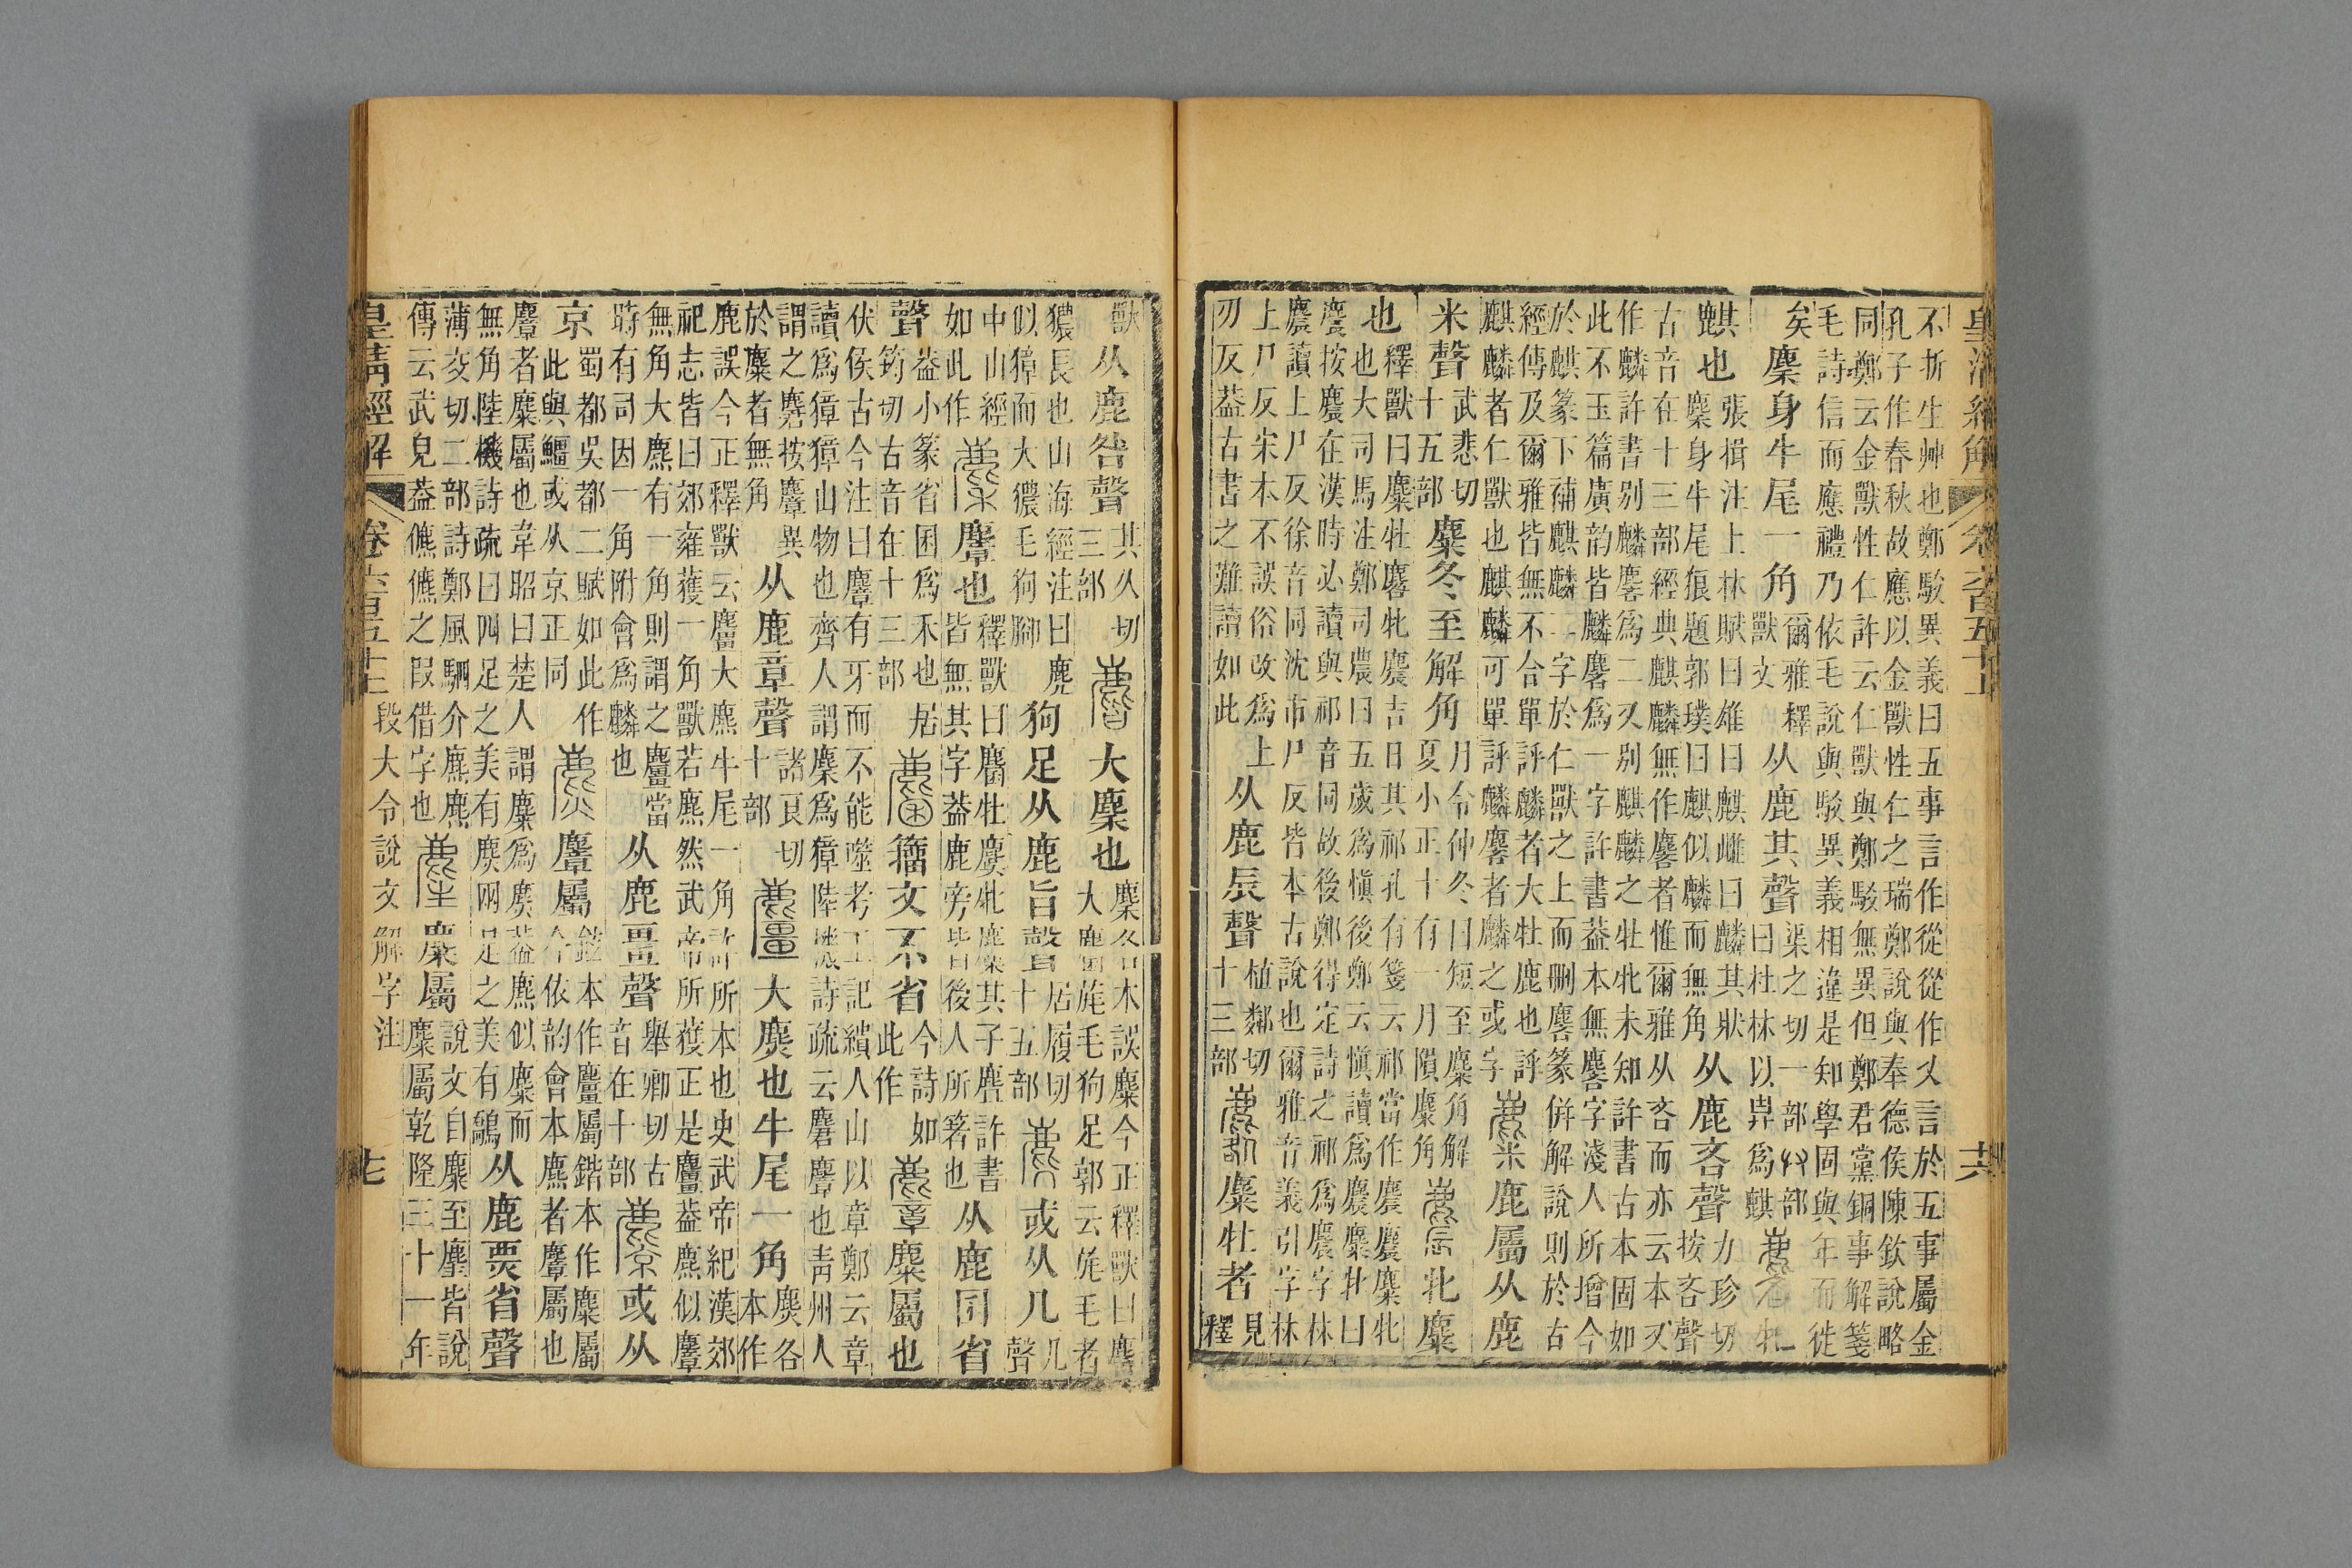 皇清經解 卷六百五十上 十六
不折生艸也鄭駁異義曰五事言作從從作乂言於五事屬金
孔子作春秋故應以金獸性仁之瑞鄭說與奉德侯陳欽說略
同鄭云金獸性仁許云仁獸與鄭駁無異但鄭君黨錮事解箋
毛詩信而應禮乃依毛說與駁異義相違是知學固與年而徙
矣麇身牛尾一角爾雅釋獸文从鹿其聲渠之切一部𠬞部曰杜林以𢍁爲麒麐牝
麒也張揖注上林賦曰雄曰麒雌曰麟其狀麇身牛尾狼題郭璞曰麒似麟而無角从鹿吝聲力珍切按吝聲
古音在十三部經典麒麟無作麐者惟爾雅从吝而亦云本又
作麟許書别麟麐爲二又别麒麟之牡牝未知許書古本固如
此不玉篇廣韵皆麟麐爲一字許書葢本無麐字淺人所增今
於麒篆下補麒麟二字於仁獸之上而刪麐篆併解說則於古
經傳及爾雅皆無不合單評麟者大牡鹿也評麒麟者仁獸也麒麟可單評麟麐者麟之或字麋鹿屬从鹿
米聲武悲切十五部麋冬至解角月令仲冬日短至麋角解夏小正十有一月隕麋角麎牝麋
也釋獸曰麋牡麔牝麎吉日其祁孔有箋云祁當作麎麎麋牝
也大司馬注鄭司農曰五歲爲愼後鄭云愼讀爲麎麋牝曰
麎按麎在漢時必讀與祁音同故後鄭得定詩之祁爲麎字林
麎讀上尸反徐音同沈市尸反皆本古說也爾雅音義引字林
上尸反宋本不誤俗改爲上刃反葢古書之難讀如此从鹿辰聲植鄰切十三部麔麋牡者見釋
獸从鹿咎聲其久切三部麠大麇也麇各本誤麋今正釋獸曰麐大麕旄毛狗足郭云旄毛者
㺜長也山海經注曰麂似獐而大㺜毛狗腳狗足从鹿旨聲居履切十五部麂或从几几聲
中山經如此作麇麞也釋獸曰麕牡麌牝麜其子麆許書皆無其字葢鹿旁皆後人所箸也从鹿囷省
聲葢小篆省囷爲禾也居筠切古音在十三部麕籒文不省今詩如此作麞麋屬也
伏侯古今注曰麞有牙而不能噬考工記繢人山以章鄭云章
讀爲獐獐山物也齊人謂麇爲獐陸機詩疏云麏麞也靑州人
謂之麏按麞異於麋者無角从鹿章聲諸良切十部麠大麃也牛尾一角麃各本作
鹿誤今正釋獸云麠大麃牛尾一角許所本也史武帝紀漢郊
祀志皆曰郊雍獲一角獸若麃然武帝所獲正是麠葢麃似麞
無角大麃有一角則謂之麠當時有司因一角附會爲麟也从鹿畺聲舉卿切古音在十部麖或从
京蜀都吳都二賦如此作此與鱷或从京正同麃麞屬鉉本作麠屬鍇本作麋屬今依韵會本麃者麞屬也
麞者麋屬也韋昭曰楚人謂麋爲麃葢麃似麋而無角陸機詩疏曰四足之美有麃兩足之美有鷮从鹿票省聲
薄交切二部詩鄭風駟介麃麃傳云武皃葢儦儦之叚借字也麈麋屬說文自麋至麈皆說麋屬乾隆三十一年
皇清經解 卷六百五十上 段大令說文解字注 十七